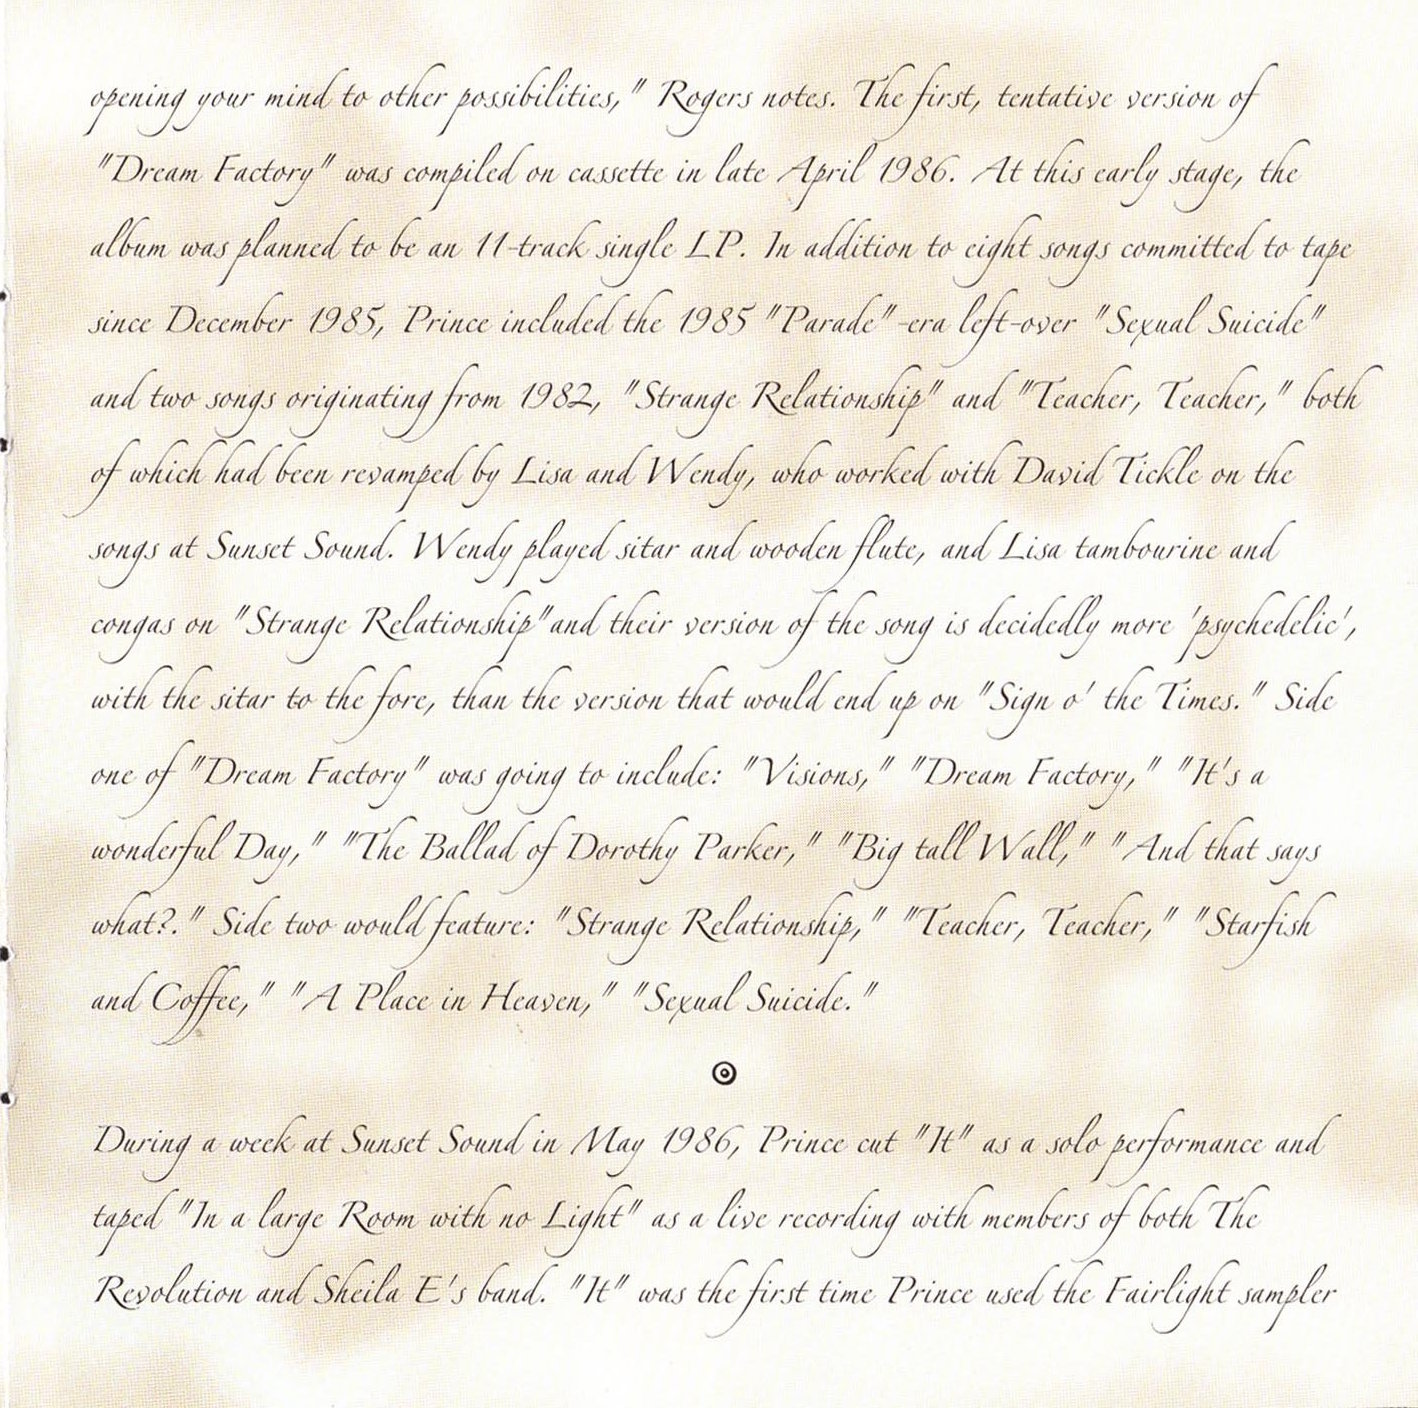 opening your mind to other possibilities," Rogers notes. The first, tentative version of
"Dream Factory" was compiled on cassette in late April 1986. At this early stage, the
album was planned to be an 11-track single LP. In addition to eight songs committed to tape
since December 1985, Prince included the 1985 "Parade"-era left-over "Sexual Suicide"
and two songs originating from 1982, "Strange Relationship" and "Teacher, Teacher," both
of which had been revamped by Lisa and Wendy, who worked with David Tickle on the
songs at Sunset Sound. Wendy played sitar and wooden flute, and Lisa tambourine and
congas on "Strange Relationship"and their version of the song is decidedly more 'psychedelic',
with the sitar to the fore, than the version that would end up on "Sign o' the Times." Side
one of "Dream Factory" was going to include: "Visions," "Dream Factory," "It's a
wonderful Day," "The Ballad of Dorothy Parker," "Big tall Wall," "And that says
what?." Side two would feature: "Strange Relationship," "Teacher, Teacher," "Starfish
and Coffee," "A Place in Heaven," "Sexual Suicide."
During a week at Sunset Sound in May 1986, Prince cut "It" as a solo performance and
taped "In a large Room with no Light" as a live recording with members of both The
Revolution and Sheila E's band. "It" was the first time Prince used the Fairlight sampler